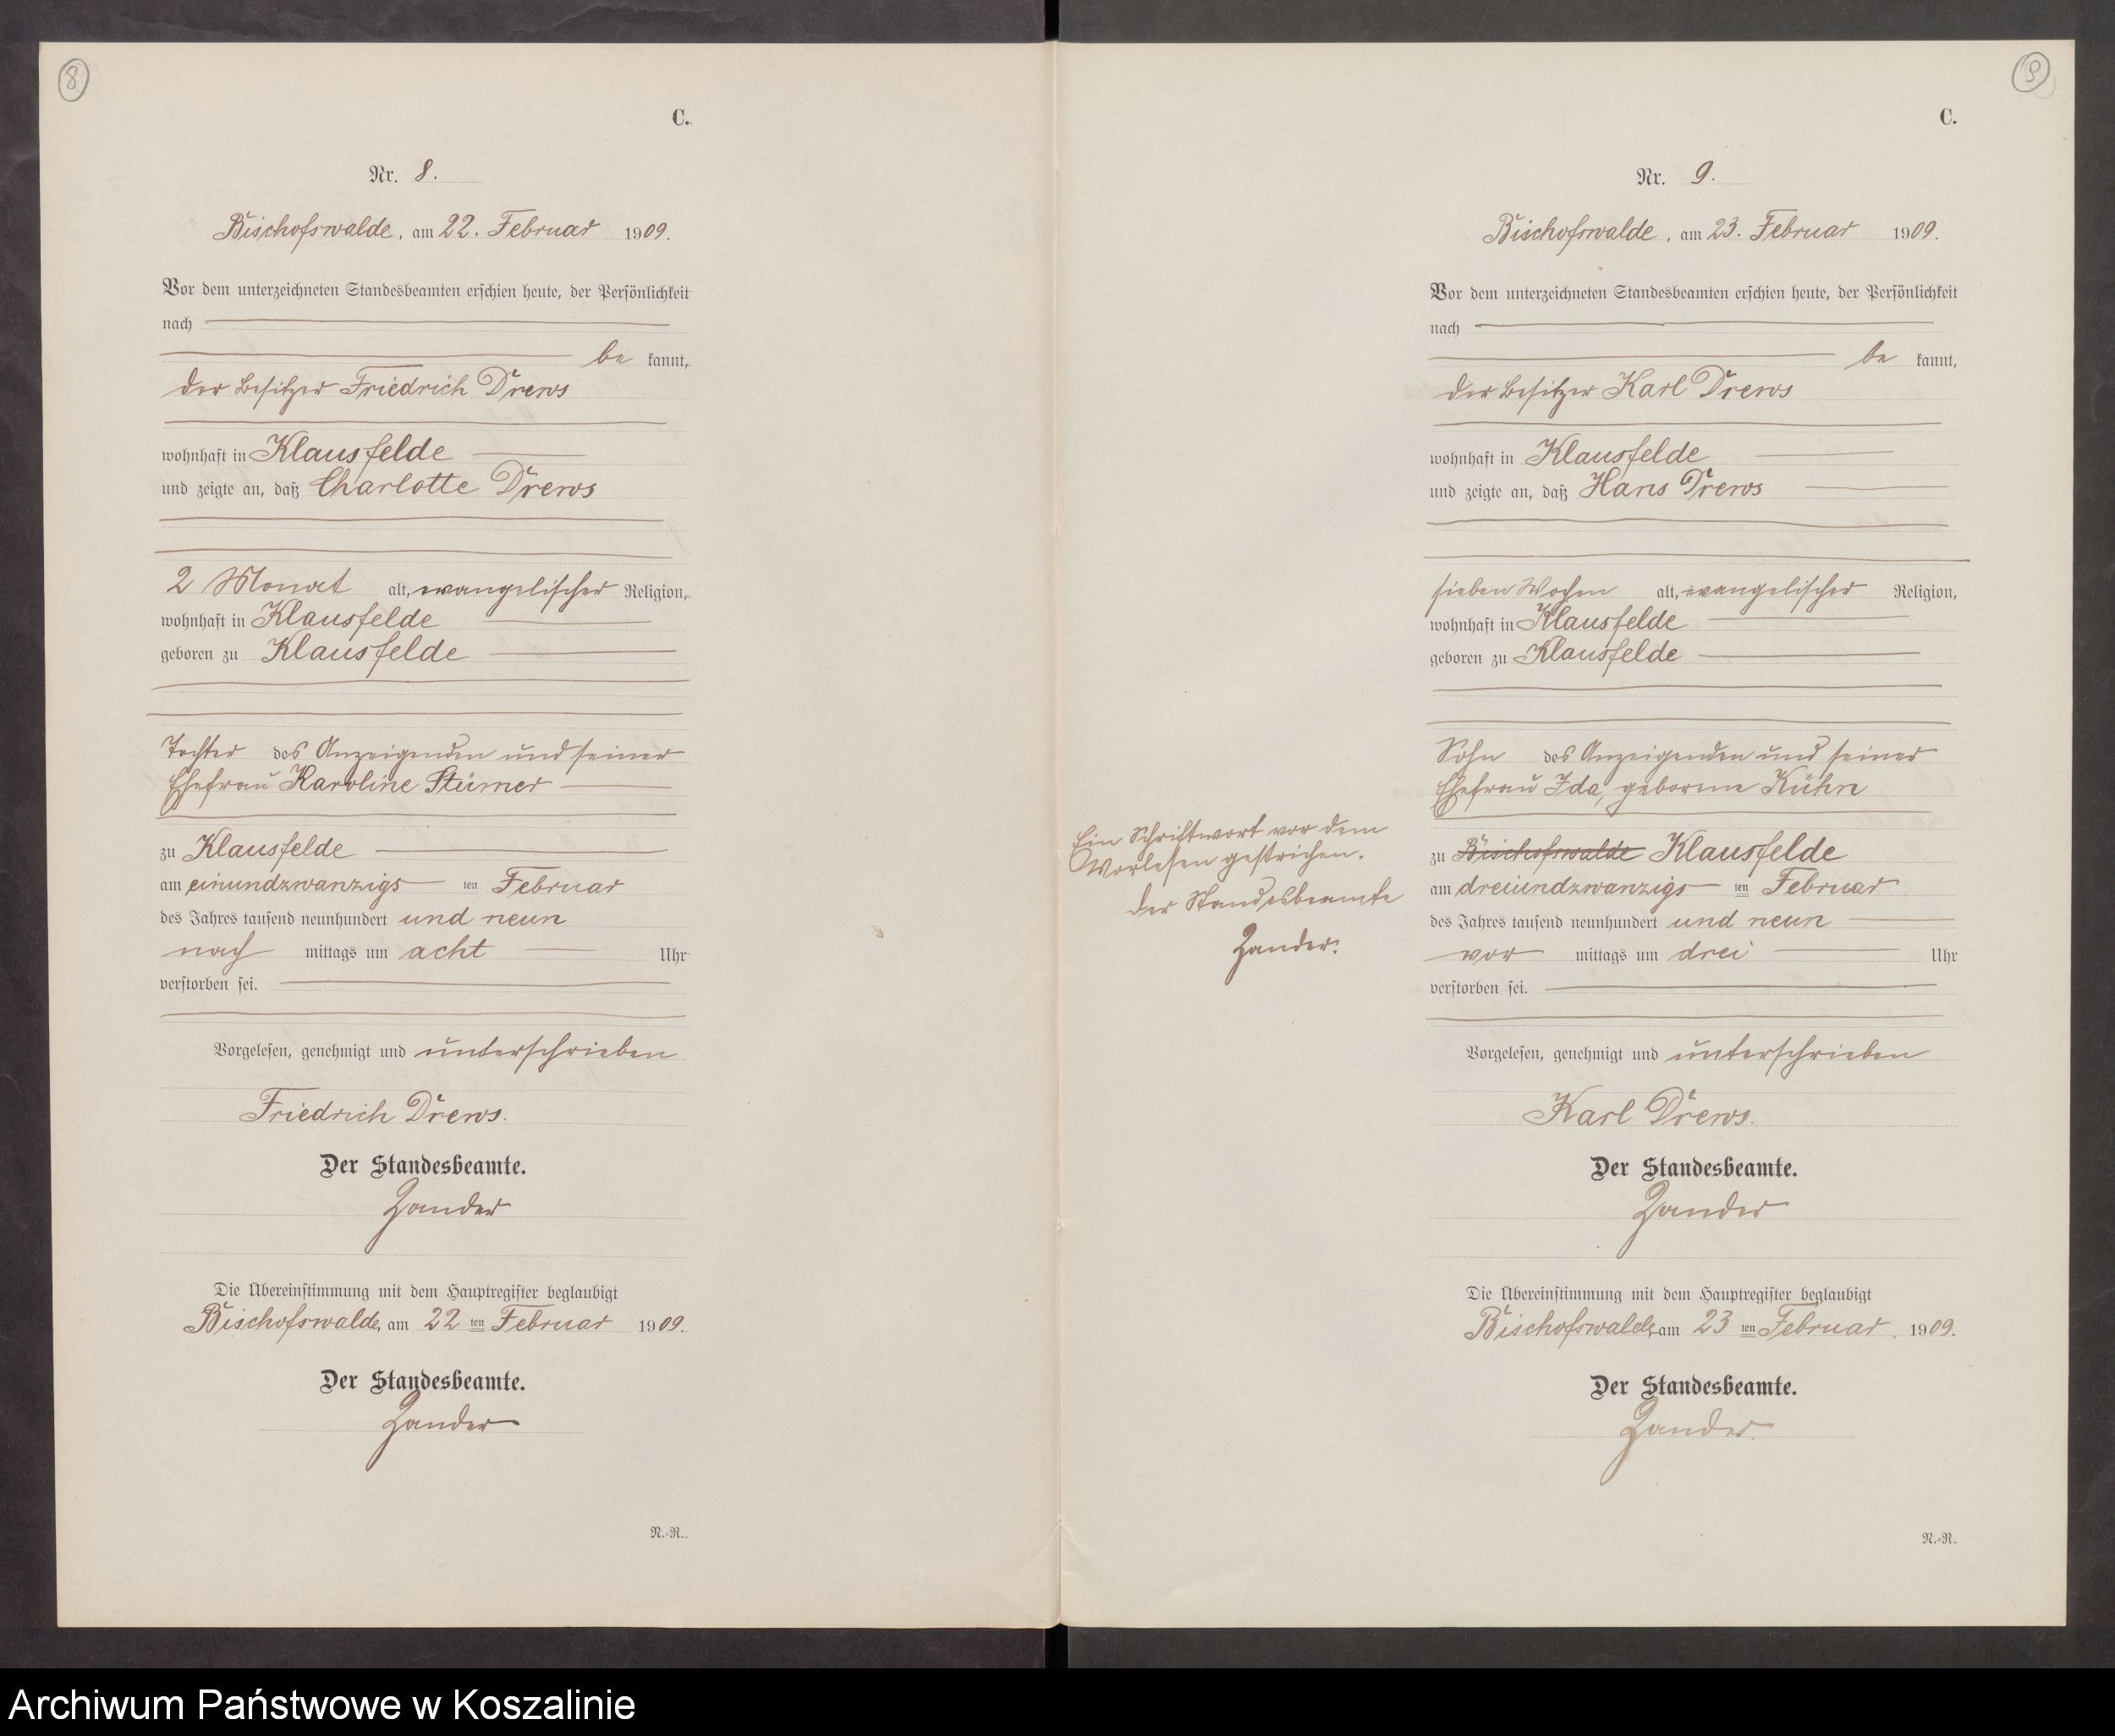 8
C.
Nr. 8.
Bischofswalde, am 22. Februar 1909.
Vor dem unterzeichneten Standesbeamten erschien heute, der Persönlichkeit
nach
be kannt,
der Besitzer Friedrich Drews
wohnhaft in Klausfelde
und zeigte an, daß Charlotte Drews
2 Monat alt, evangelischer Religion,
wohnhaft in Klausfelde
geboren zu Klausfelde
Tochter des Anzeigenden und seiner
Ehefrau Karoline Stümer
zu Klausfelde
am einundzwanzigs ten Februar
des Jahres tausend neunhundert und neun
nach mittags um acht Uhr
verstorben sei.
Vorgelesen, genehmigt und unterschrieben
Friedrich Drews.
Der Standesbeamte.
Zander
Die Übereinstimmung mit dem Hauptregister beglaubigt
Bischofswalde, am 22 ten Februar 1909.
Der Standesbeamte.
Zander
N.-R.
9
C.
Nr. 9.
Bischofswalde, am 23. Februar 1909.
Vor dem unterzeichneten Standesbeamten erschien heute, der Persönlichkeit
nach
be kannt,
der Besitzer Karl Drews
wohnhaft in Klausfelde
und zeigte an, daß Hans Drews
sieben Wochen alt, evangelischer Religion,
wohnhaft in Klausfelde
geboren zu Klausfelde
Sohn des Anzeigenden und seiner
Ehefrau Ida, geborene Kühn
zu Bischofswalde Klausfelde
am dreiundzwanzigs ten Februar
des Jahres tausend neunhundert und neun
vor mittags um drei Uhr
verstorben sei.
Ein Schriftwort vor dem
Vorlesen gestrichen.
Der Standesbeamte
Zander.
Vorgelesen, genehmigt und unterschrieben
Karl Drews.
Der Standesbeamte.
Zander
Die Übereinstimmung mit dem Hauptregister beglaubigt
Bischofswalde, am 23 ten Februar 1909.
Der Standesbeamte.
Zander.
N.-R.
Archiwum Państwowe w Koszalinie